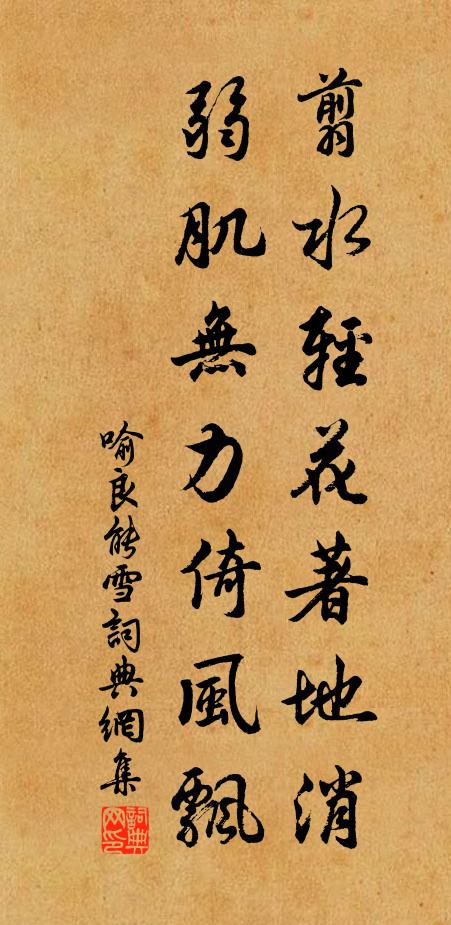 翦水輕花著地消
弱肌無力倚風飄
喻良能雪詞典網集
詞典網印